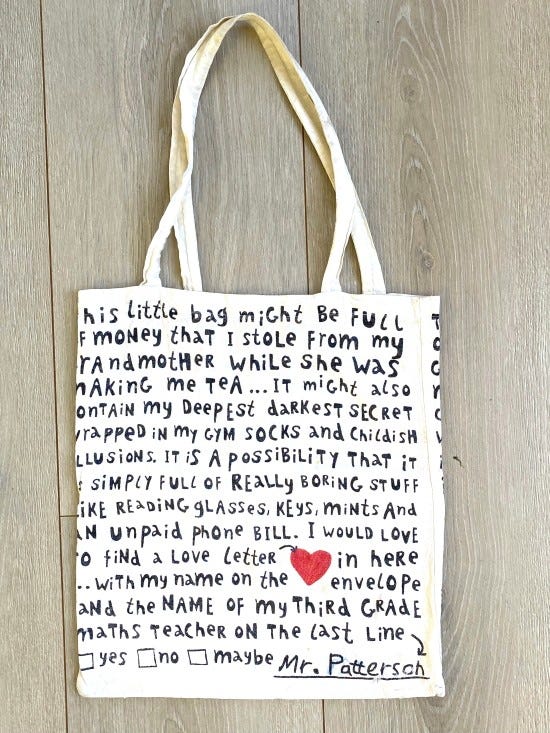 his little bag miGht Be FULL
F moNey thaT I STOLE From my
rAndmotHer while She wAS
mAKinG me TeA... IT miGht also
ONTAIN my DEEPEST darKEST SECRET
wraPPED IN my GYM SOCKS and CHiLdisH
LLUSIONS. IT IS A POSSIBILITY THAT iT
S SiMPLY FULL OF REALLy BORING STUFF
LIKE READING gLASSES, KEYS, MINTS And
AN UnPAID PHONE BILL. I WOULD LOVE
O FiNd a Love Letter in here
..WITH my name on the envelope
aNd the NAME OF my THIrd GRADE
maTHS TeacHer ON THe LaST LINe
yes no maybe Mr. Patterson